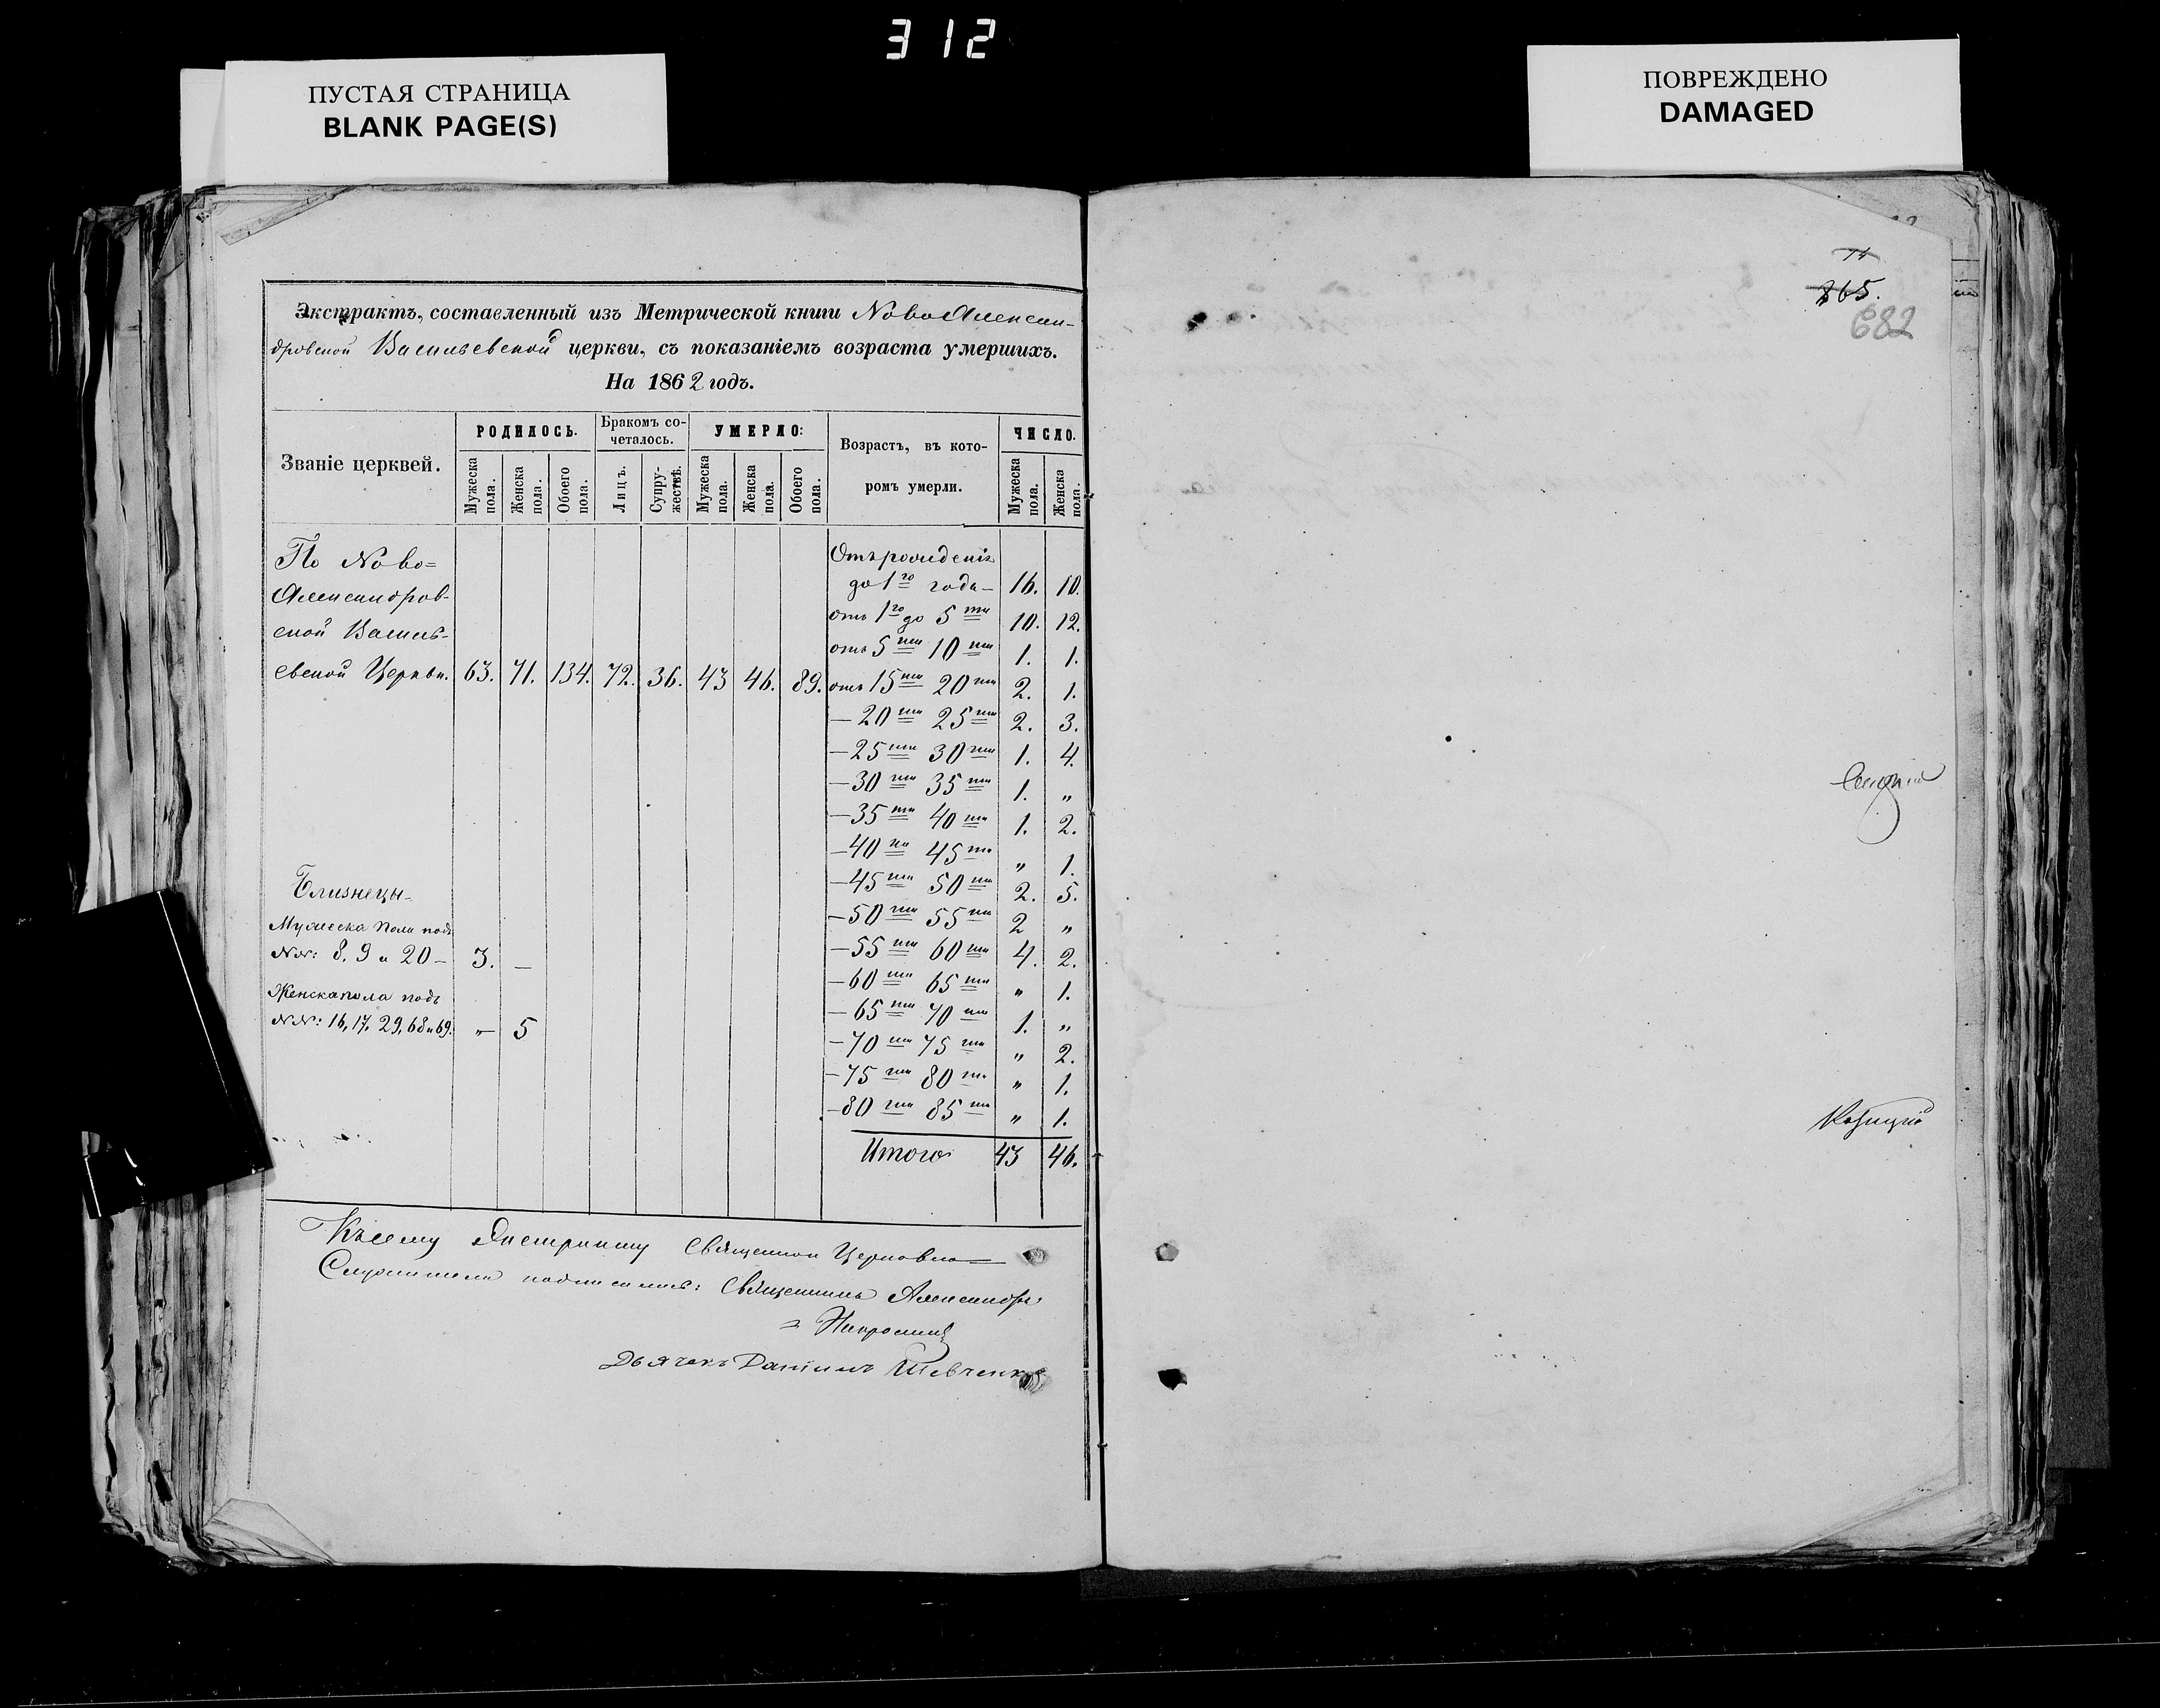 312
ПУСТАЯ СТРАНИЦА
BLANK PAGE(S)
ПОВРЕЖДЕНО
DAMAGED
14
365.
682
Экстрактъ, составленный изъ Метрической книги Ново Алексан-
дровской Васильевской церкви, съ показаніемъ возраста умершихъ.
На 1862 годъ.
Званіе церквей. РОДИЛОСЬ. Бракомъ со- четалось. УМЕРЛО: Возрастъ, въ кото- ромъ умерли. ЧИСЛО.
Мужеска пола. Женска пола. Обоего пола. Лицъ. Супру- жествъ. Мужеска пола. Женска пола. Обоего пола. Мужеска пола. Женска пола.
По Ново=
Александров-
ской Василь-
евской Церкви. 63. 71. 134. 72. 36. 43 46. 89.
Отъ рожденія
до 1го года- 16. 10.
отъ 1го до 5ти 10. 12.
отъ 5ти 10ти 1. 1.
отъ 15ти 20ти 2. 1.
- 20ти 25ти 2. 3.
- 25ти 30ти 1. 4.
- 30ти 35ти 1. „
- 35ти 40ти 1. 2.
- 40ти 45ти „ 1.
- 45ти 50ти 2. 5.
- 50ти 55ти 2 „
- 55ти 60ти 4. 2.
- 60ти 65ти „ 1.
- 65ти 70ти 1. „
- 70ти 75ти „ 2.
- 75ти 80ти „ 1.
- 80ти 85ти „ 1.
Итого 43 46.
Близнецы-
Мужеска пола подъ
NN: 8, 9 и 20 - 3. -
Женска пола подъ
NN: 16, 17, 29, 68 и 69. „ - 5
Къ сему Экстракту Священно Церковно
Служители подписались: Священникъ Александръ
Дьячекъ Даніилъ Шевченко